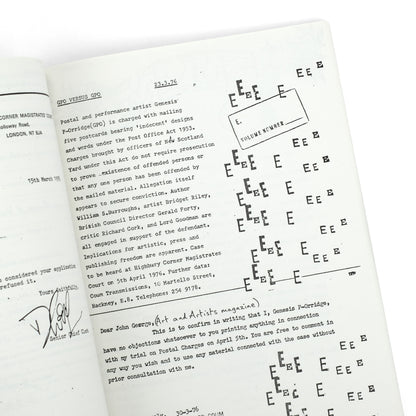 CORNER MAGISTRATES COU
olloway Road,
LONDON, N7
15th March 197
considered your applicatio
refused it.
Yours faithfully,
Senior Chief Cler
23.3.76
GPO VERSUS GPO
Postal and performance artist Genesis
P-Orridge(GPO) is charged with mailing
five postcards bearing 'indecent' designs
and words under the Post Office Act 1953.
Charges brought by officers of New Scotland
Yard under this Act do not require prosecution
to prove existence of offended persons or
that any one person has been offended by
the mailed material. Allegation itself
appears to secure conviction. Author
William S.Burroughs, artist Bridget Riley,
British Council Director Gerald Forty,
critic Richard Cork, and Lord Goodman are
all engaged in support of the defendant.
Implications for artistic, press and
publishing freedom are apparent. Case
to be heard at Highbury Corner Magistrates
Court on 5th April 1976. Further data:
Coum Transmissions, 10 Martello Street,
Hackney, E.8. Telephone: 254 9178.
E.
VOLUME NUMBER
Dear John George, (Art and Artists magazine)
This is to confirm in writing that I, Genesis P-Orridge,
have no objections whatsoever to you printing anything in connection
with my trial on Postal Charges on April 5th. You are free to comment in
any way you wish and to use any material connected with the case without
prior consultation with me.
30-3-76
COUM